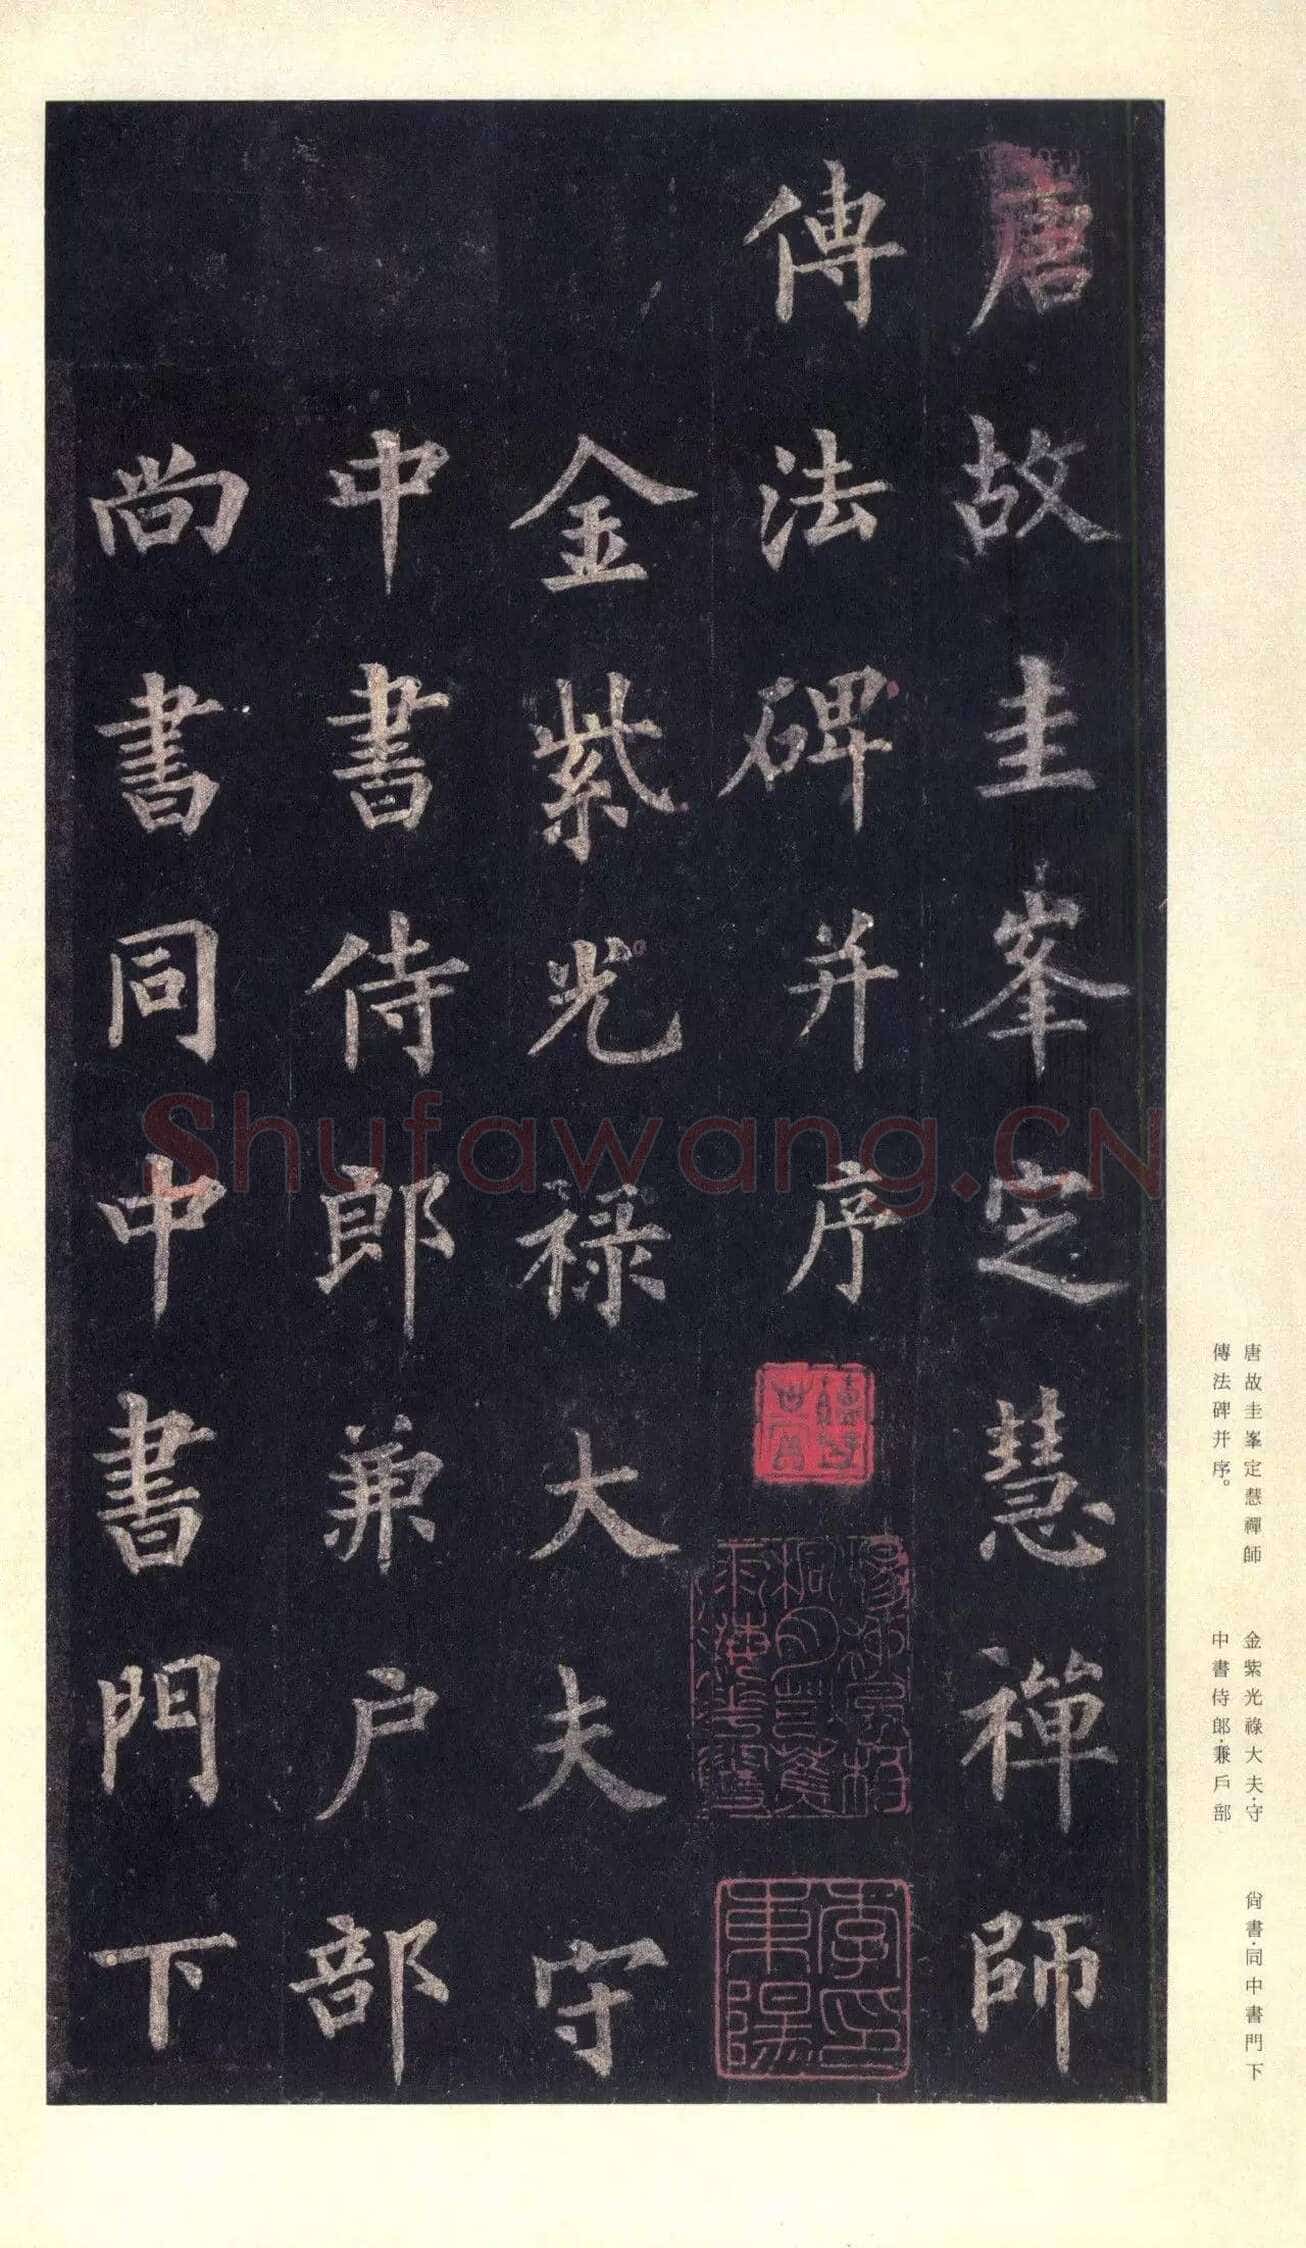 唐故圭峯定慧禪師
傳法碑并序
金紫光祿大夫守
中書侍郎兼户部
尚書同中書門下
Shufawang.CN
唐故圭峯定慧禪師
傳法碑并序。
金紫光祿大夫·守
中書侍郎·兼戶部
尙書·同中書門下